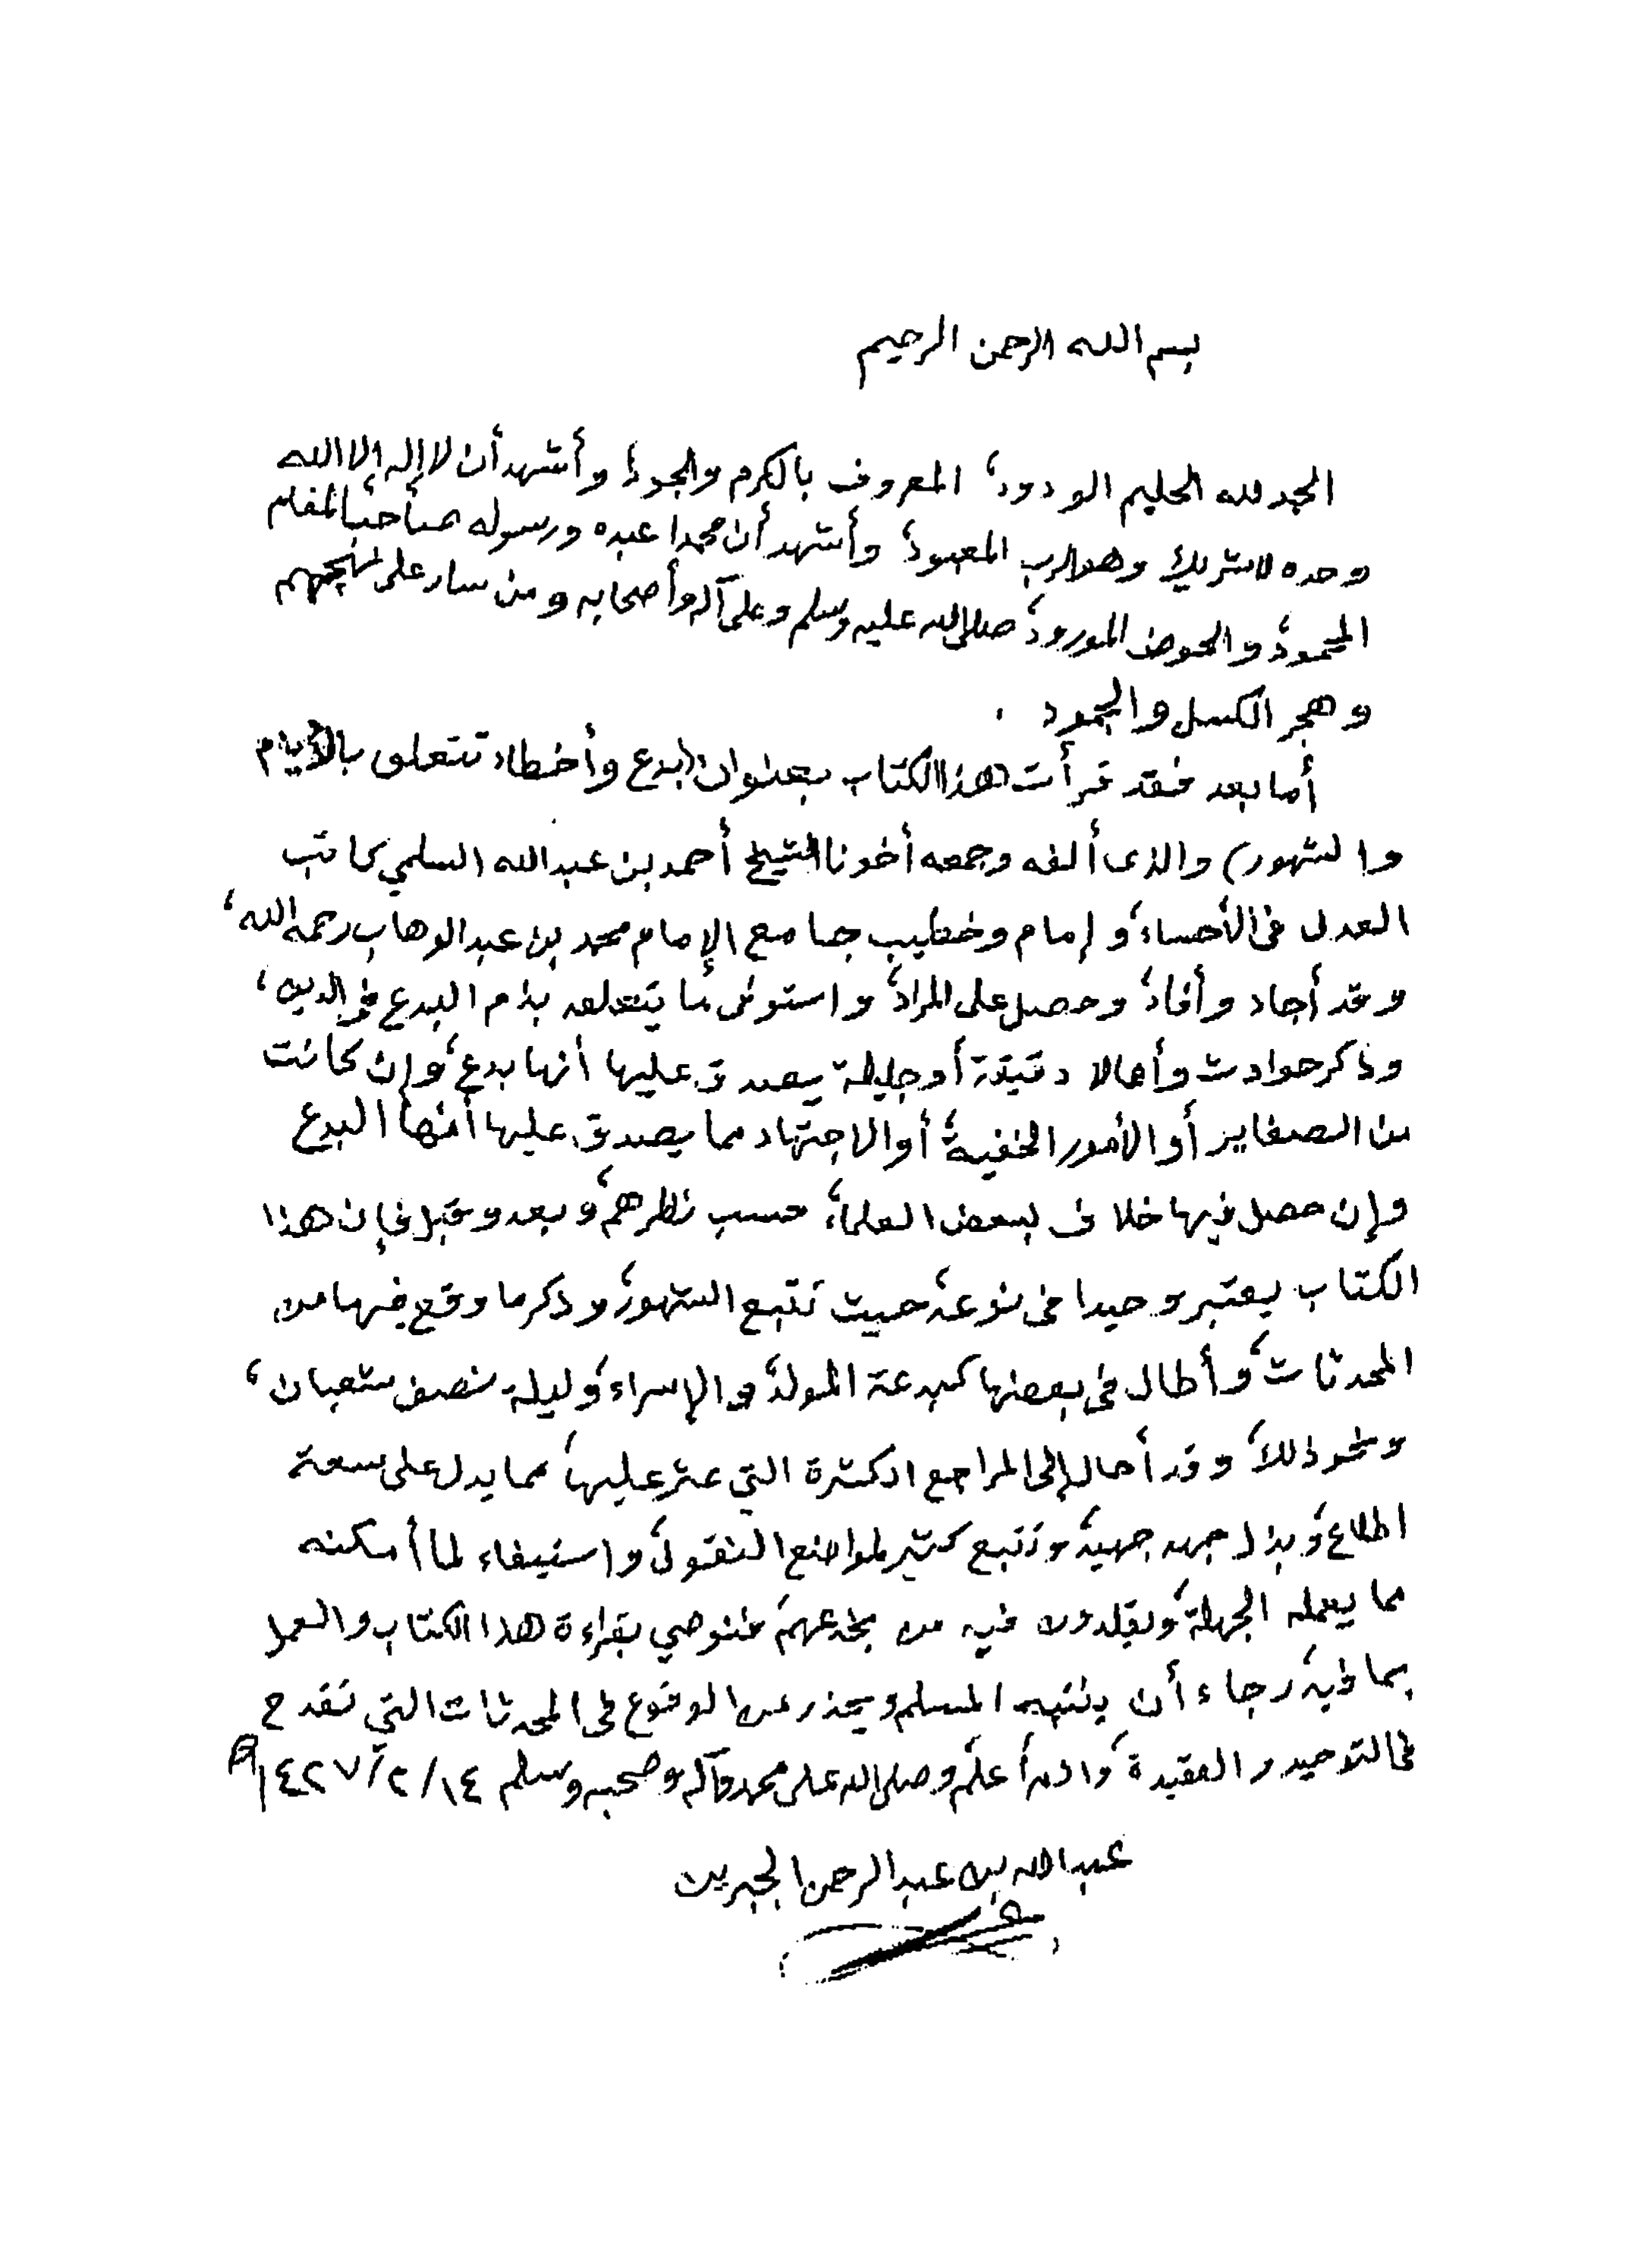 بسم الله الرحمن الرحيم
الحمد لله الحليم الودود، المعروف بالكرم والجود، وأشهد أن لا إله إلا الله
وحده لا شريك وهو الرب المعبود، وأشهد أن محمدا عبده ورسوله صاحب المقام
المحمود، والحوض المورود، صلى الله عليه وسلم وعلى آله وأصحابه ومن سار على نهجهم
وهجر الكسل والجمود .
أما بعد فقد قرأت هذا الكتاب بعنوان (بدع وأخطاء تتعلق بالأيام
والشهور) والذى ألفه وجمعه أخونا الشيخ أحمد بن عبدالله السلمي كاتب
العدل في الأحساء، وإمام وخطيب جامع الإمام محمد بن عبدالوهاب رحمه الله،
وقد أجاد وأفاد، وحصل على المراد، واستوفى ما يتعلق بذم البدع في الدين،
وذكر حوادث وأعمالا دقيقة أو جليلة يصدق عليها أنها بدع، وإن كانت
من الصغاير أو الأمور الخفية، أو الاجتهاد مما يصدق عليها أنها البدع
وإن حصل فيها خلاف لبعض العلماء، حسب نظرهم، وبعد وقبل فإن هذا
الكتاب يعتبر وحيدا في نوعه، حيث تتبع الشهور، وذكر ما وقع فيها من
المحدثات، وأطال في بعضها كبدعة المولد، والإسراء، وليلة نصف شعبان،
ونحو ذلك، وقد أحال إلى المراجع الكثيرة التي عثر عليها، مما يدل على سعة
اطلاع، وبذل جهد جهيد، وتتبع كثير لمواضع النقول، واستيفاء لما أمكنه
مما يعمله الجهلة، ويقلدون فيه من يخدعهم، فنوصي بقراءة هذا الكتاب والعمل
بما فيه، رجاء أن ينتبه المسلم ويحذر من الوقوع في المحدثات التي تقدح
في التوحيد والعقيدة، والله أعلم، وصلى الله على محمد وآله وصحبه وسلم ١٤/٢/١٤٢٧هـ
عبدالله بن عبدالرحمن الجبرين